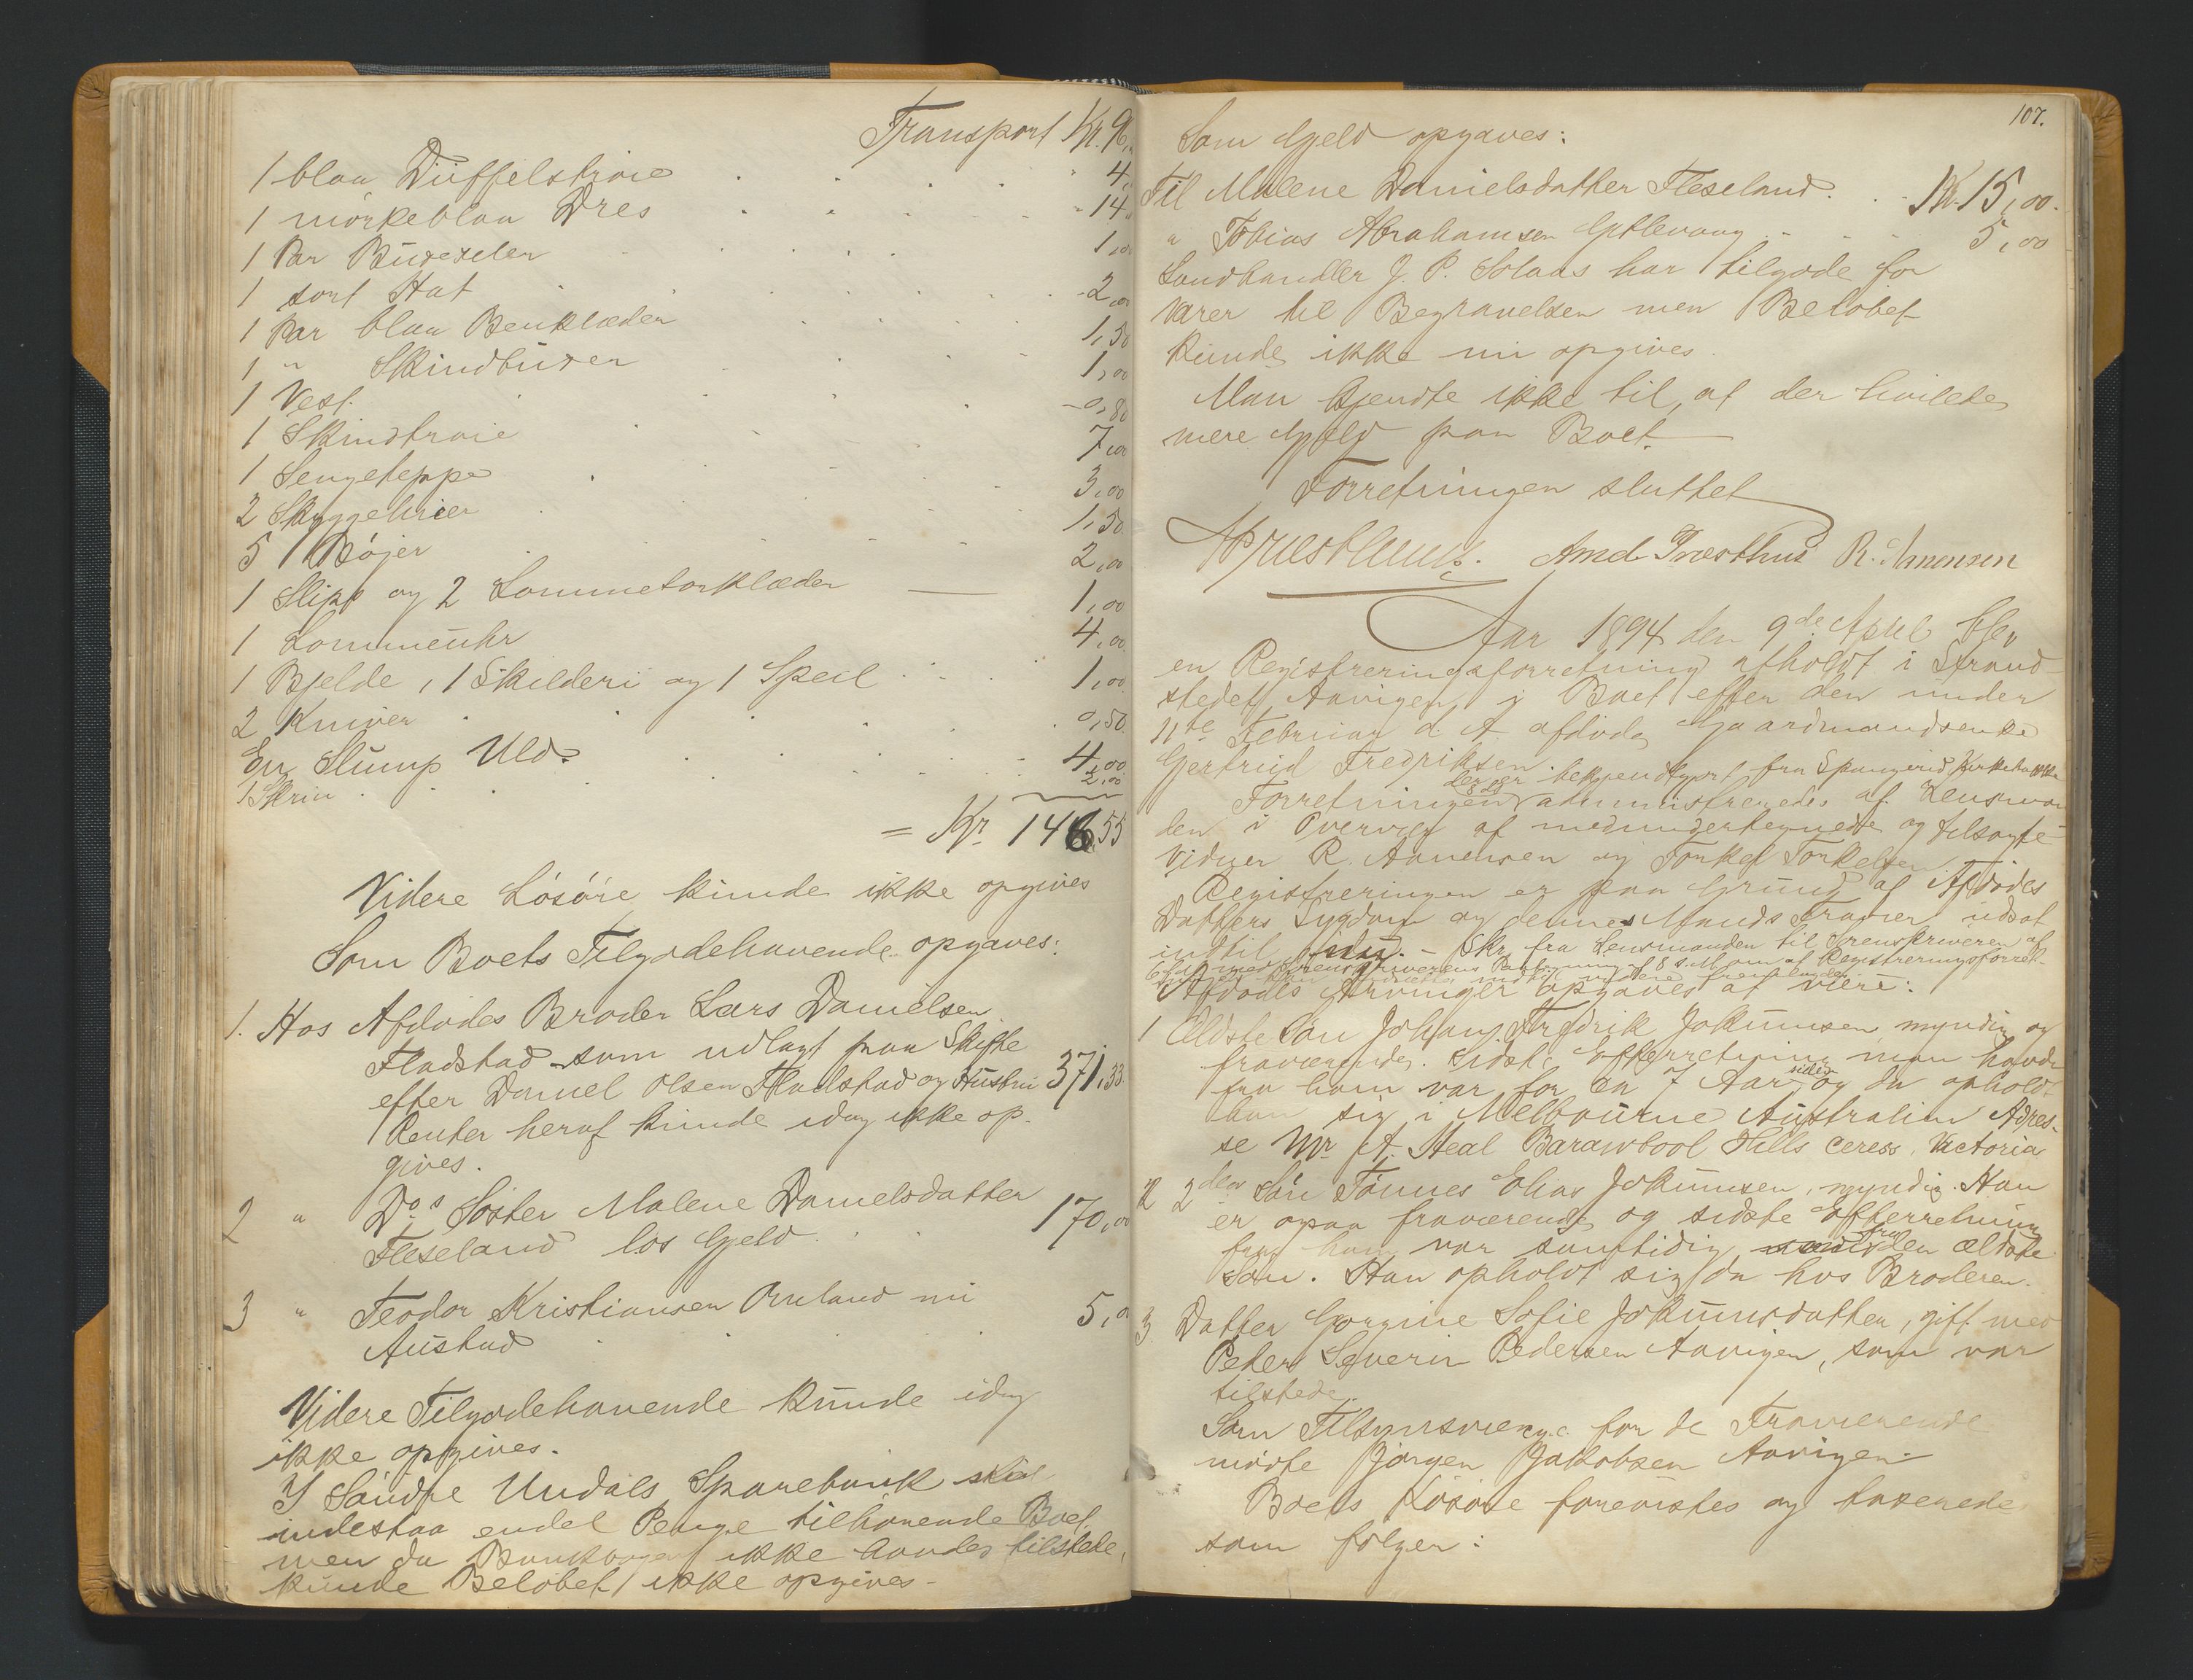 Transport Kr. 96,
1 blaa Düffelstrøie 4,
1 mörkeblaa Dres 14,
1 Par Büxeseler 1,00
1 sort Hat 2,00
1 Par blaa Benklæder 1,50
1 " Skindbüxer 1,00
1 Vest 0,80
1 Skindtrøie 7,00
1 Sengeteppe 3,00
2 Skyggeluer 1,50
5 Bøjer 2,00
1 Slips og 2 Lommetørklæder 1,00
1 Lommeühr 4,00
1 Bjelde, 1 Skilderi og 1 Speil 1,00
2 Kniver 0,50
En Slump Uld 4,00
1 Skrin 2,00
= Kr. 146,55
Videre Løsøre kunde ikke opgives
Som Boets Tilgodehavende opgaves:
1. Hos Afdødes Broder Lars Danielsen
Fladstad som udlagt paa Skifte
efter Daniel Olsen Fladstad og Hustru 371,33
Renter heraf kunde idag ikke op-
gives.
2 " Do s Søster Malene Danielsdatter
Fleseland løs Gjeld 170,00
3 " Teodor Kristiansen nu
Austad 5,0
Videre Tilgodehavende kunde idag
ikke opgives.
I Søndre Undals Sparebank skal
indestaa endel Penge tilhørende Boet
men da Bankbogen ikke havdes tilstede,
kunde Beløbet ikke opgives -
107.
Som Gjeld opgaves:
Til Malene Danielsdatter Fleseland. Kr. 15,00.
" Tobias Abrahamsen 5,00
Landhandler J. P. Solaas har tilgode for
Varer til Begravelsen men Beløbet
kunde ikke nu opgives.
Man kjendte ikke til, at der hvilede
mere Gjeld paa Boet.
Forretningen sluttet
Amd Præsthus R. Anensen
Aar 1894 den 9de April blev
en Registreringsforretning afholdt i Strand-
stedet Aavigen i Boet efter den under
11te Februar d. A. afdøde Gaardmandsenke
Gertrud Fredriksen.
der er bekjendtgjort fra Spangereid Kirkebakke
Forretningen administreredes af Lensman-
den i Overvær af medundertegnede og tilsagte
Vidner R. Aanensen og Torkel Torkelsen
Registreringen er paa Grund af Afdødes
Datters Sygdom og dennes Mands Fravær udsat
indtil idag. - Skr. fra Lensmanden til Sorenskriveren af
Afdødes Arvinger opgaves at være:
1 Ældste Søn Johan Fredrik Jokumsen, myndig og
fraværende. Sidste Efterretning man havde
fra ham var for en 7 Aar siden og da opholdt
han sig i Melbourne Australien Adres-
se Mr A. Heal Barawbool Hills Ceress, Victoria
2 2den Søn Tønnes Elias Jokumsen, myndig. Han
er ogsaa fraværende og sidste Efterretning
fra ham var samtidig fra den ældste
Søn. Han opholdt sig da hos Broderen.
3 Datter Gorgine Sofie Jokumsdatter, gift med
Peder Severin Pedersen Aavigen, som var
tilstede.
Som Tilsynsværge for de Fraværende
mødte Jörgen Jakobsen Aavigen
Boets Løsøre forevistes og taxerede
som følger: